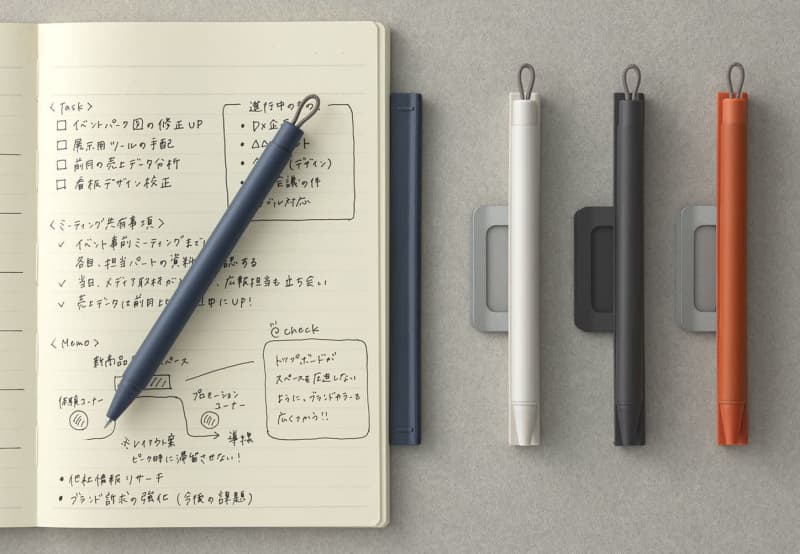 〈Task〉
□ イベントパーク図の修正UP
□ 展示用ツールの手配
□ 前月の売上データ分析
□ 看板デザイン校正
進行中のもの
• DX企
• △△ ト
• (デザイン)
会議の件
ル対応
〈ミーティング共有事項〉
✓ イベント事前ミーティングまでに
各自、担当パートの資料 認する
✓ 当日、メディア取材が 、広報担当も立ち会い
✓ 売上データは前月比 中にUP!
〈Memo〉
check
新商品 スペース
体験コーナー
プロモーション
コーナー
トップボードが
スペースを圧迫しない
ように、ブランドカラーを
広くつかう!!
※レイアウト案
ピーク時に滞留させない!
導線
• 他社情報リサーチ
• ブランド訴求の強化 (今後の課題)